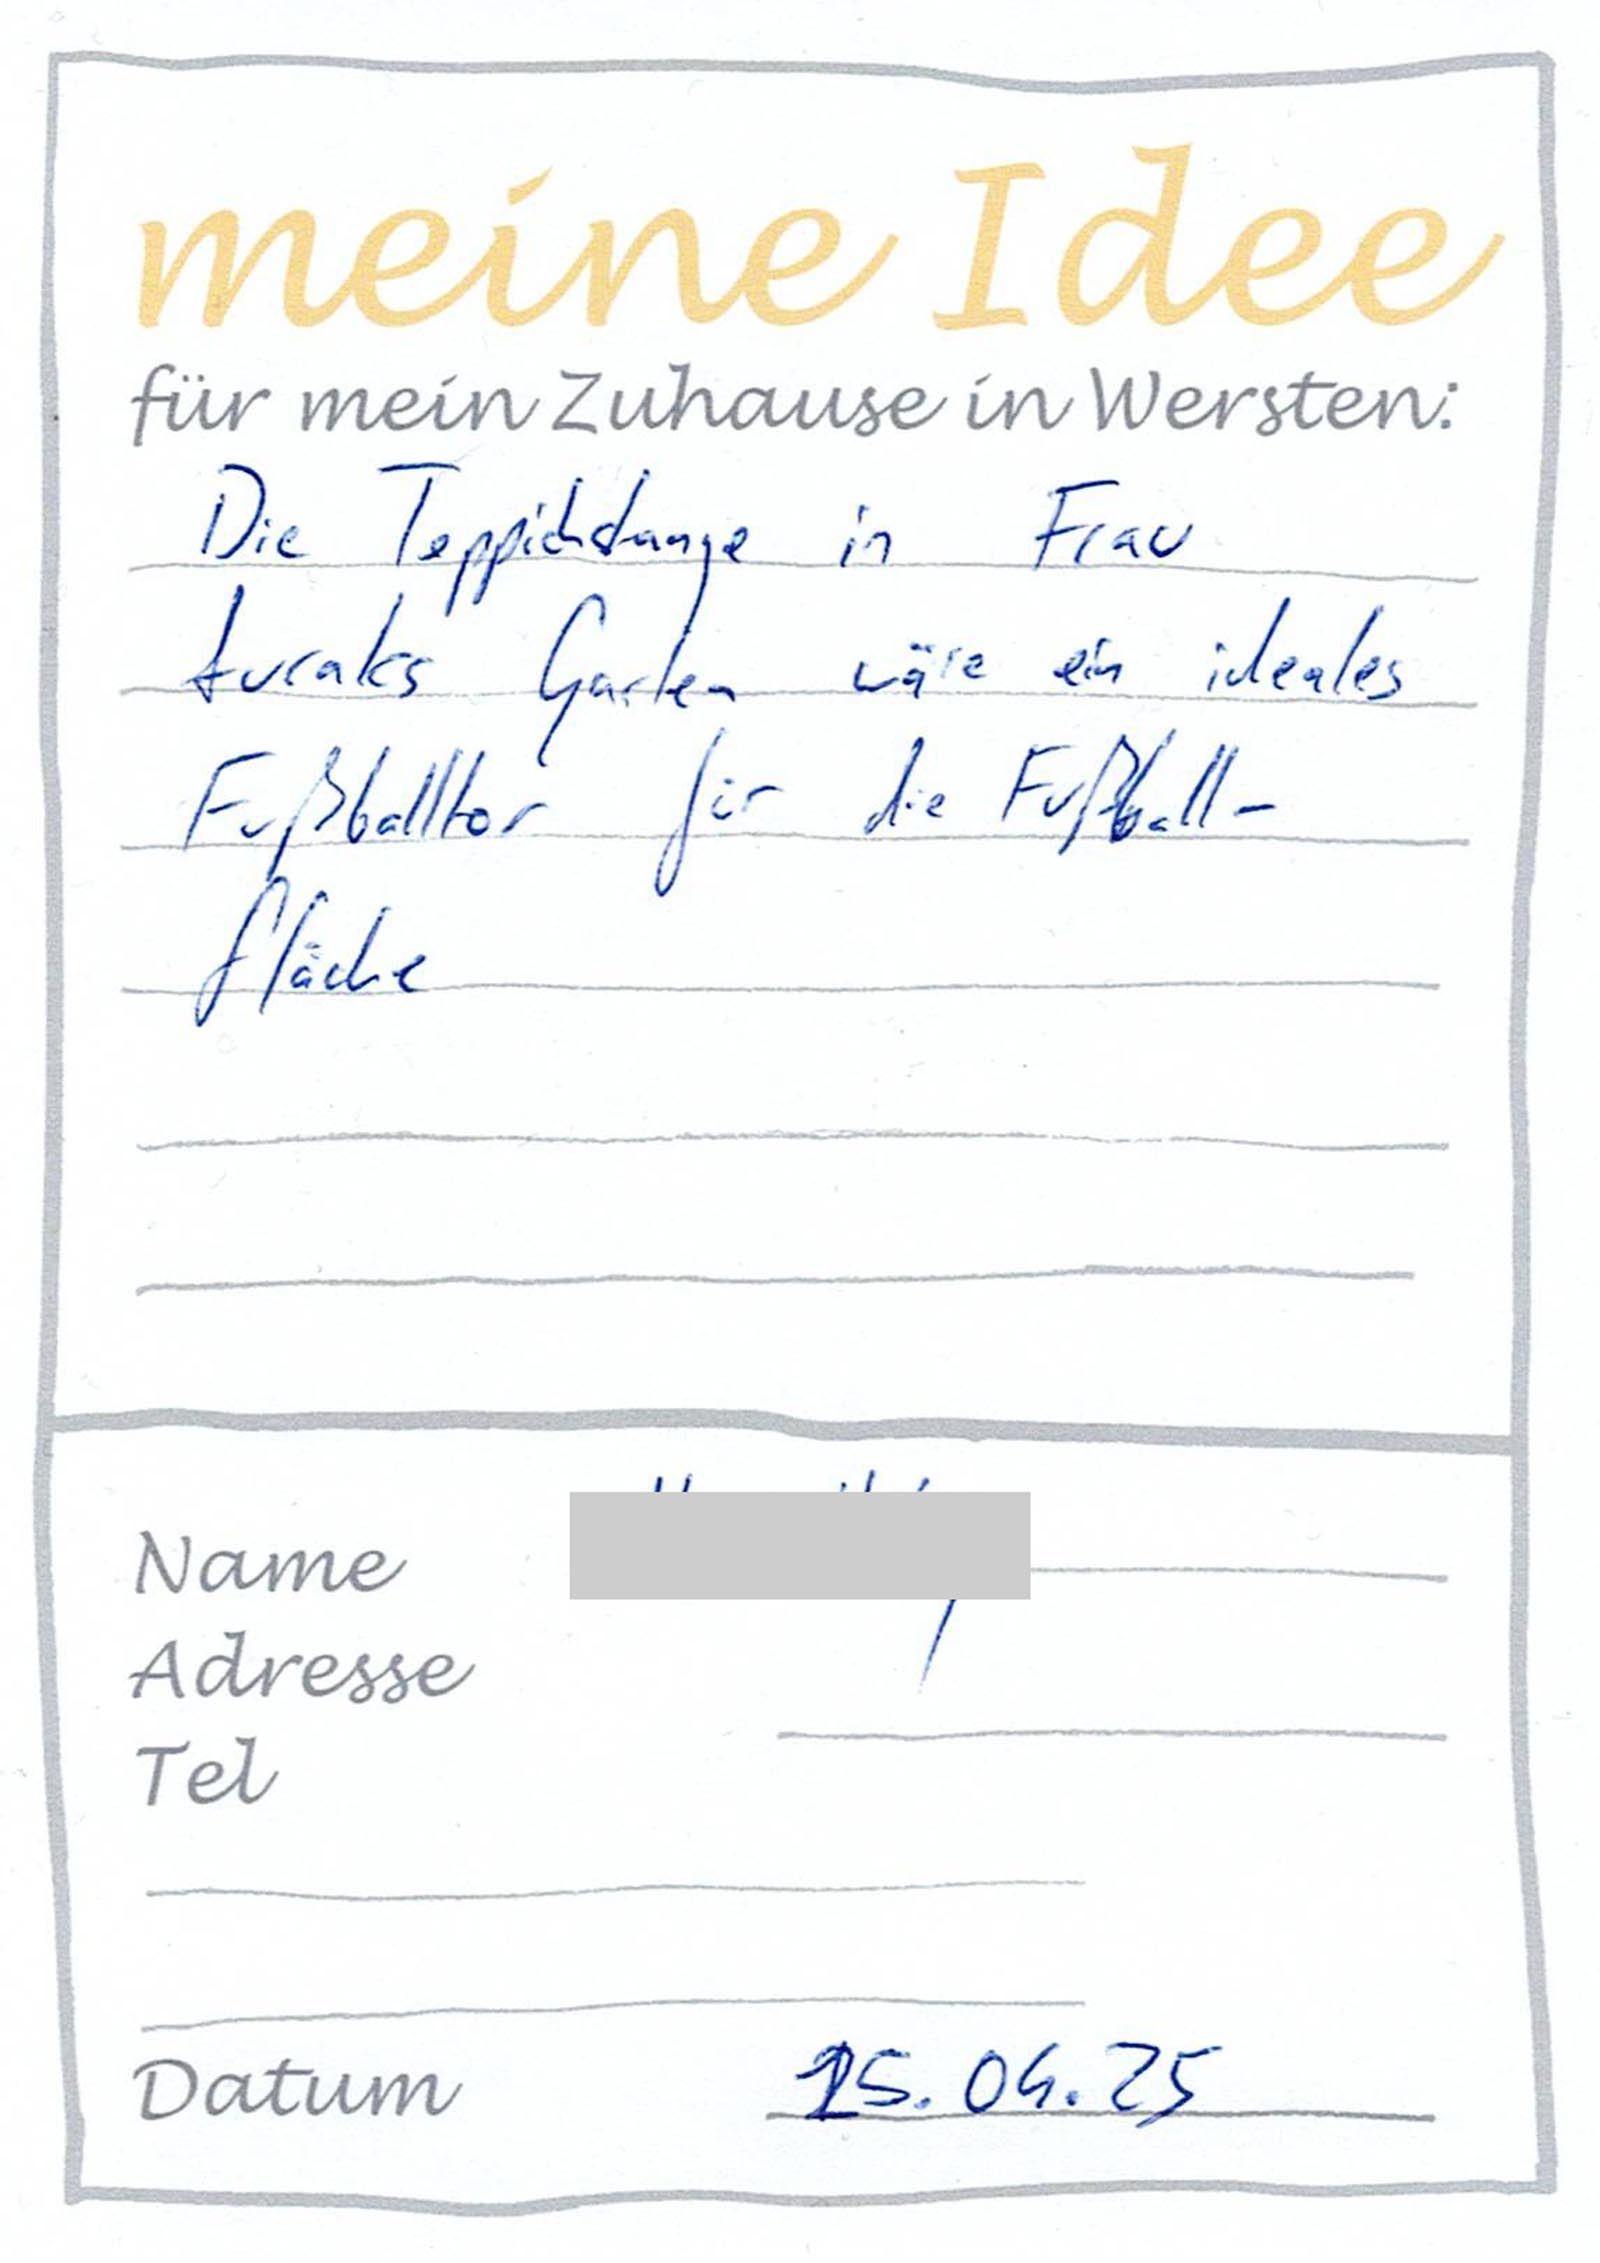 meine Idee
für mein Zuhause in Wersten:
Die Teppichstange in Frau
Garten wäre ein ideales
Fußballtor für die Fußball-
fläche
Name
Adresse
Tel
Datum 25.04.25